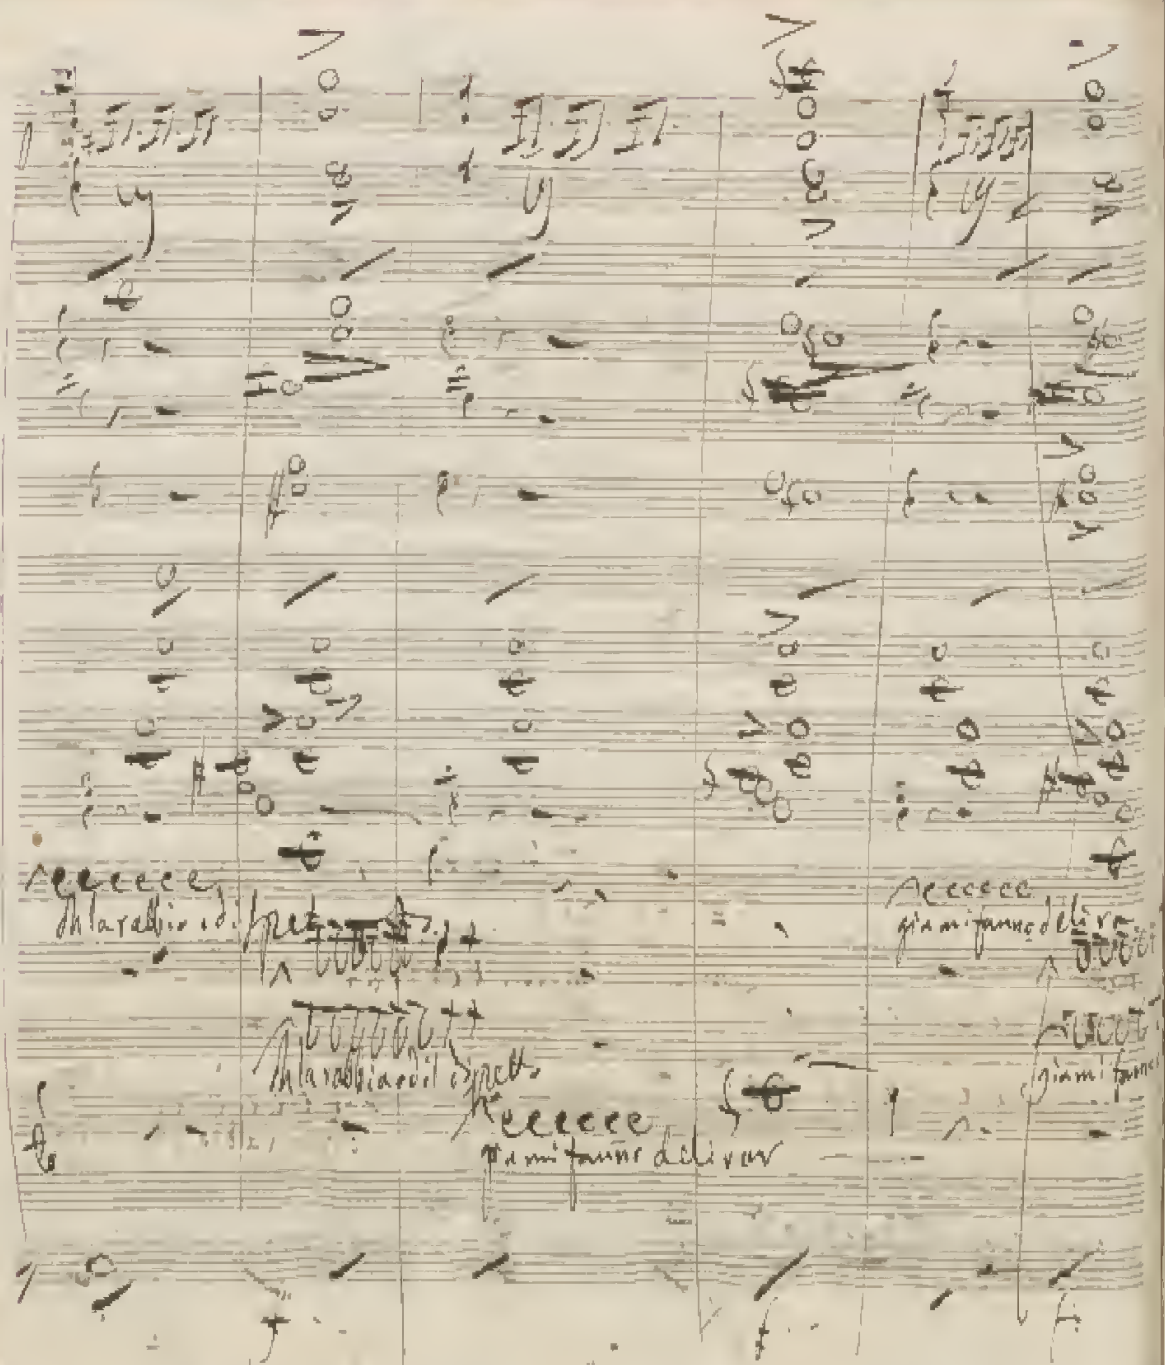 la rabbia ed il dispet
già mi fanno delirar
la rabbia ed il dispett
già mi fanno
già mi fanno delirar
f
f
f